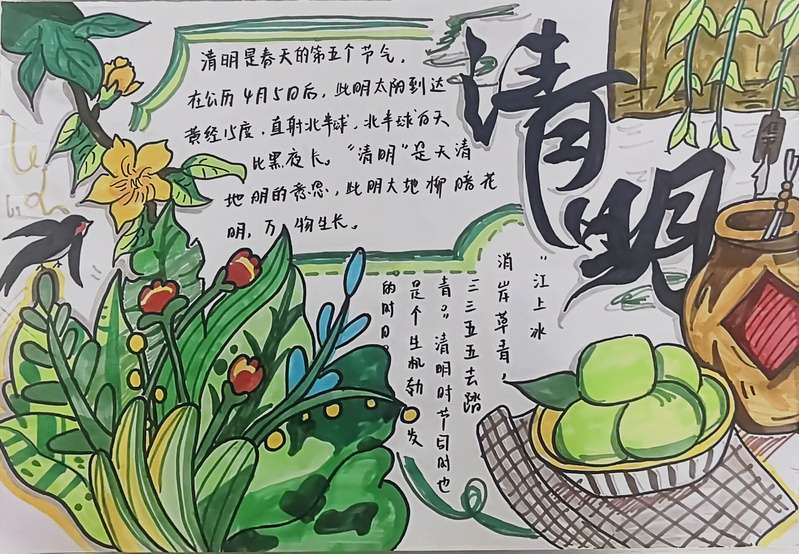 清明
清明是春天的第五个节气，
在公历4月5日后，此明太阳到达
黄经15度，直射北半球，北半球白天
比黑夜长。“清明”是天清
地明的意思，此明大地柳暗花
明，万物生长。
“江上冰
消岸草青，
三三五五去踏
青。”清明时节同时也
是个生机勃发
的时日